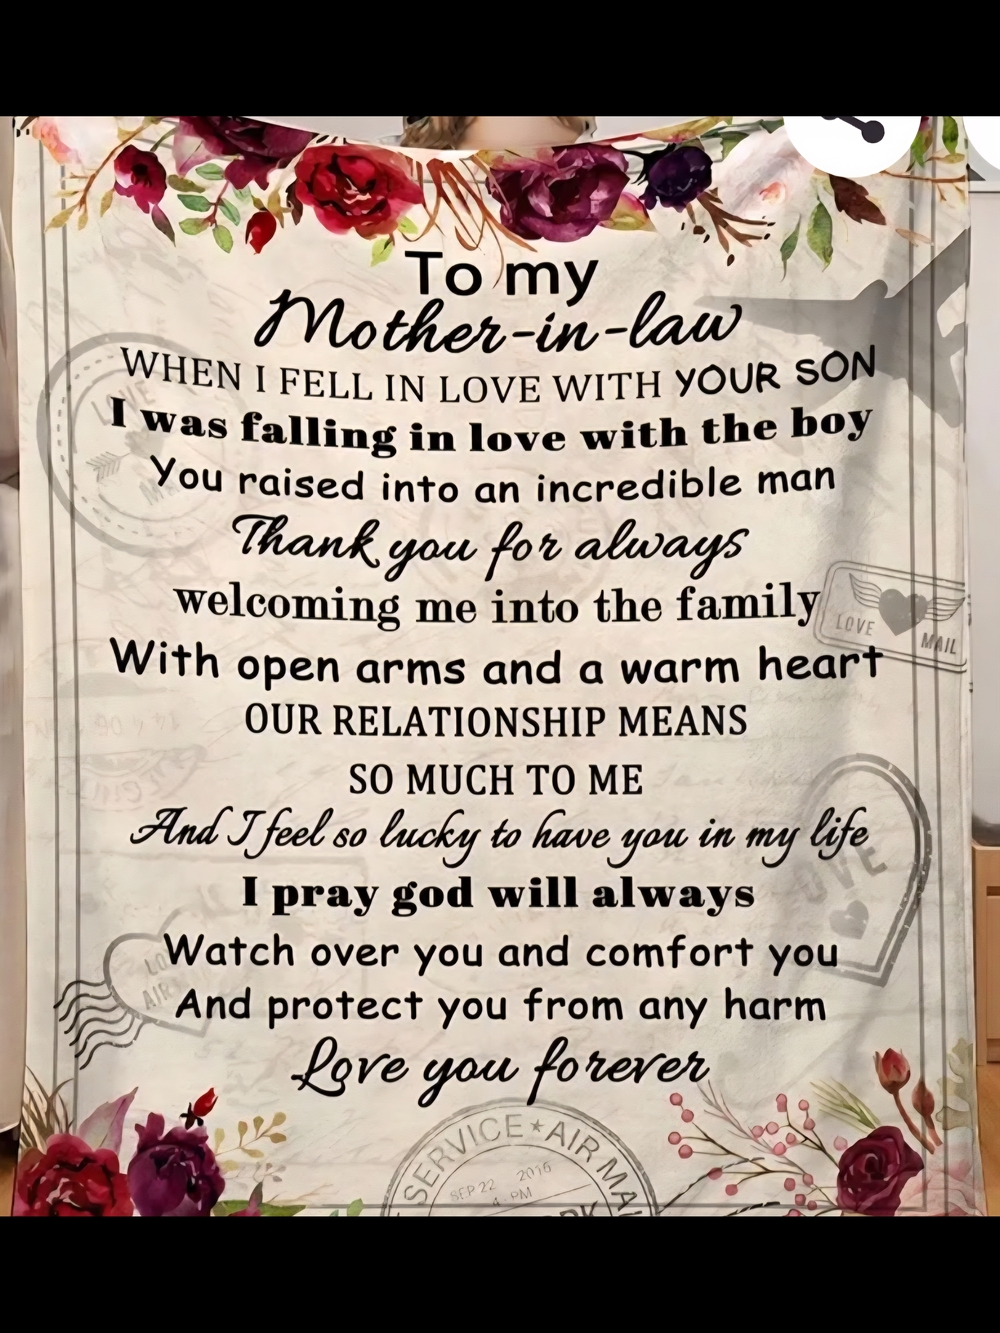 To my
Mother-in-law
WHEN I FELL IN LOVE WITH YOUR SON
I was falling in love with the boy
You raised into an incredible man
Thank you for always
welcoming me into the family
With open arms and a warm heart
OUR RELATIONSHIP MEANS
SO MUCH TO ME
And I feel so lucky to have you in my life
I pray god will always
Watch over you and comfort you
And protect you from any harm
Love you forever
LOVE
LOVE
MAIL
LOVE
AIR
SERVICE★AIR MA
SEP 22 2016
4 - PM